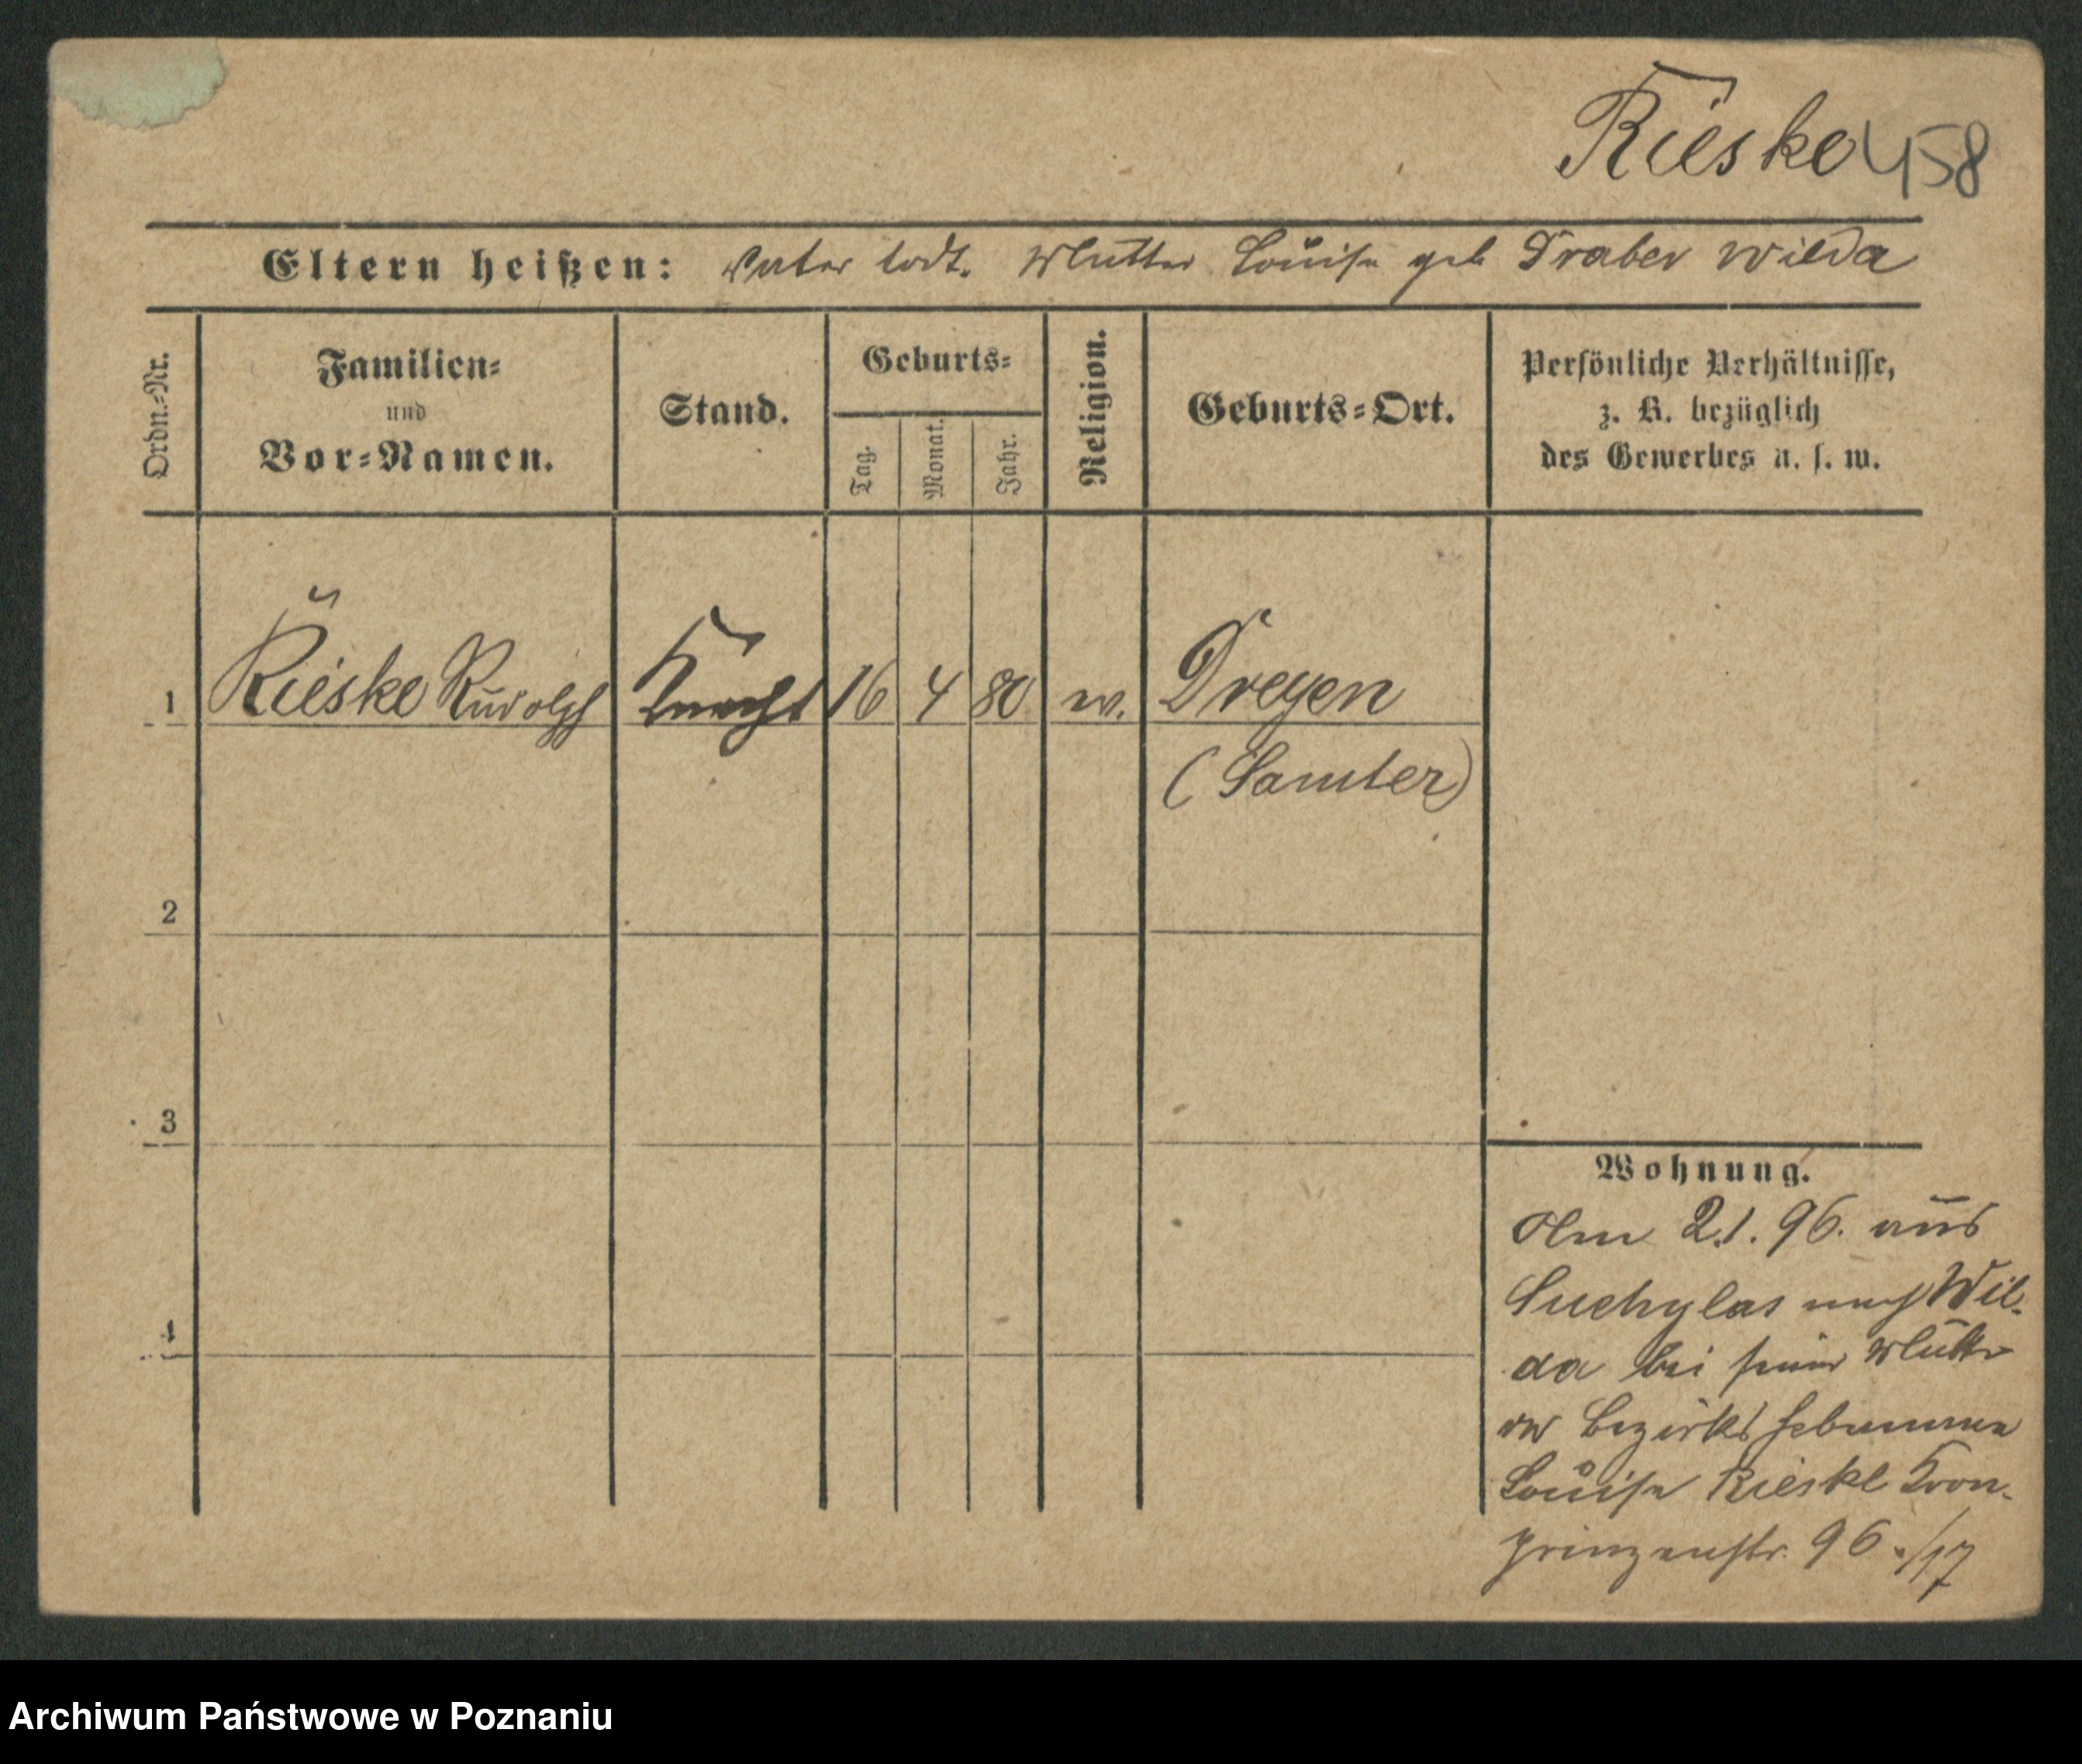 Rieske 458
Eltern heißen: Vater todt. Mutter Louise geb Draber Wilda
Ordn.-Nr.
Familien-
und
Vor-Namen.
Stand.
Geburts-
Tag.
Monat.
Jahr.
Religion.
Geburts-Ort.
Persönliche Verhältnisse,
z. B. bezüglich
des Gewerbes u. s. w.
1 Rieske Rudolf Knecht 16 4 80 ev. Dreyen
(Samter)
2
3
4
Wohnung.
Am 2.1.96. aus
Suchylas nach Wil-
da bei seiner Mutter
der Bezirks Hebamme
Louise Rieske Kron-
prinzenstr. 96./17
Archiwum Państwowe w Poznaniu